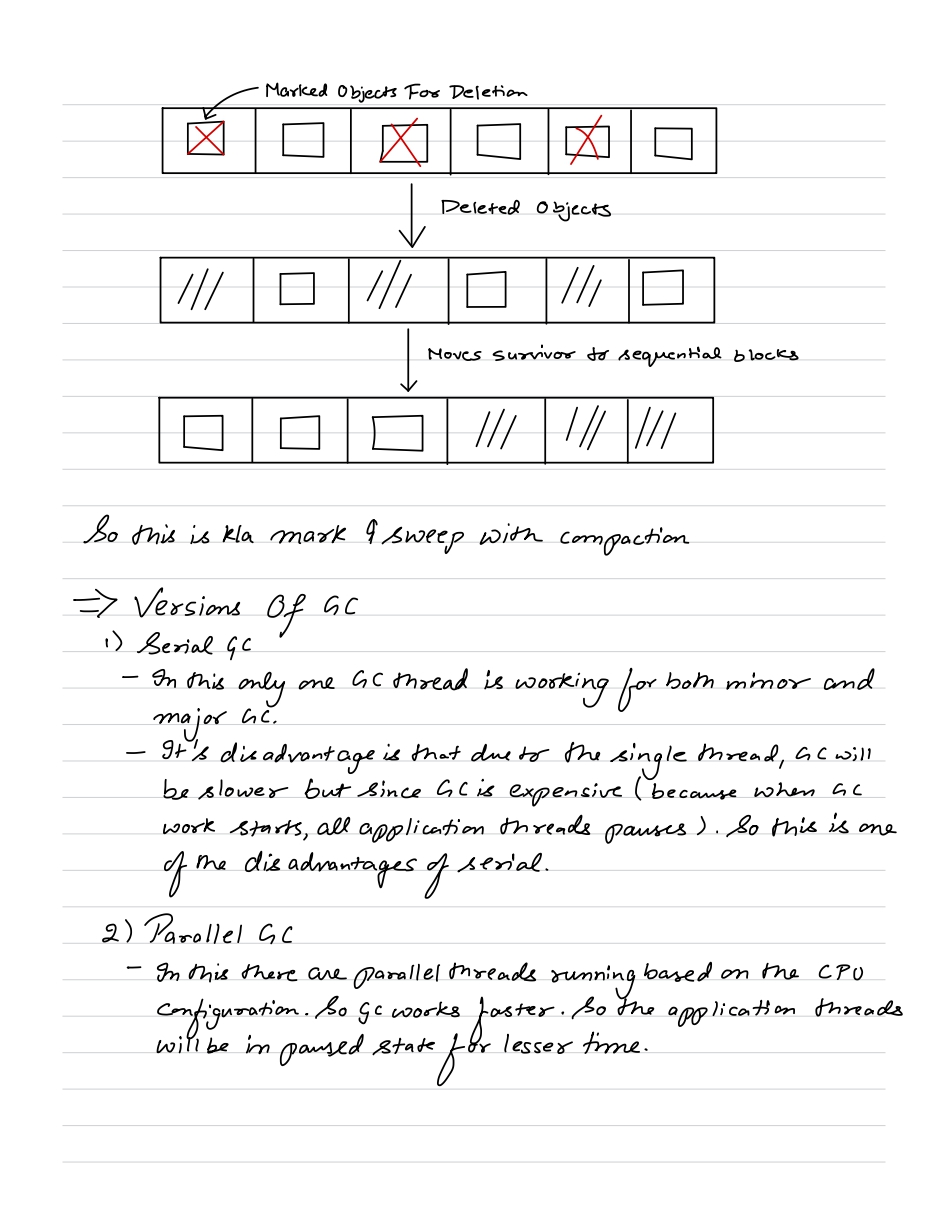 Marked Objects For Deletion
Deleted Objects
Moves survivor to sequential blocks
So this is k/a mark & sweep with compaction
=> Versions Of GC
1) Serial GC
- In this only one GC thread is working for both minor and
major GC.
- It's disadvantage is that due to the single thread, GC will
be slower but since GC is expensive (because when GC
work starts, all application threads pauses). So this is one
of the disadvantages of serial.
2) Parallel GC
- In this there are parallel threads running based on the CPU
configuration. So GC works faster. So the application threads
will be in paused state for lesser time.